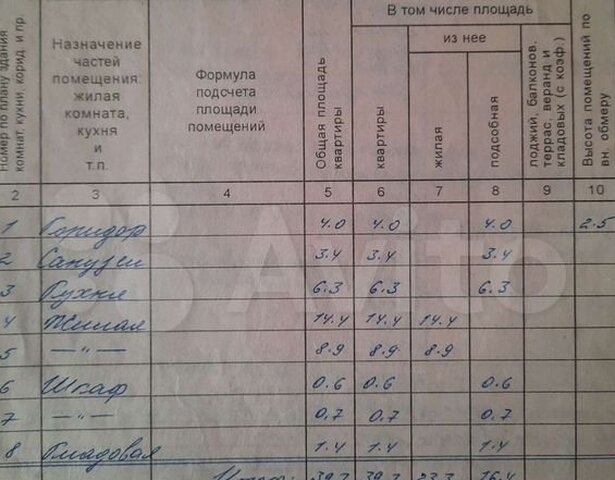 Номер по плану здания
комнат, кухни, корид. и пр.
Назначение
частей
помещения:
жилая
комната,
кухня
и
т.п.
Формула
подсчета
площади
помещений
Общая площадь
квартиры
В том числе площадь
квартиры
из нее
жилая
подсобная
лоджий, балконов,
террас, веранд и
кладовых (с коэф.)
Высота помещений по
вн. обмеру
2 3 4 5 6 7 8 9 10
1 Коридор 4.0 4.0 4.0 2.5
2 Санузел 3.4 3.4 3.4
3 Кухня 6.3 6.3 6.3
4 Жилая 14.4 14.4 14.4
5 —"— 8.9 8.9 8.9
6 Шкаф 0.6 0.6 0.6
7 —"— 0.7 0.7 0.7
8 Кладовая 1.4 1.4 1.4
Итого: 39.7 39.7 23.3 16.4
Avito